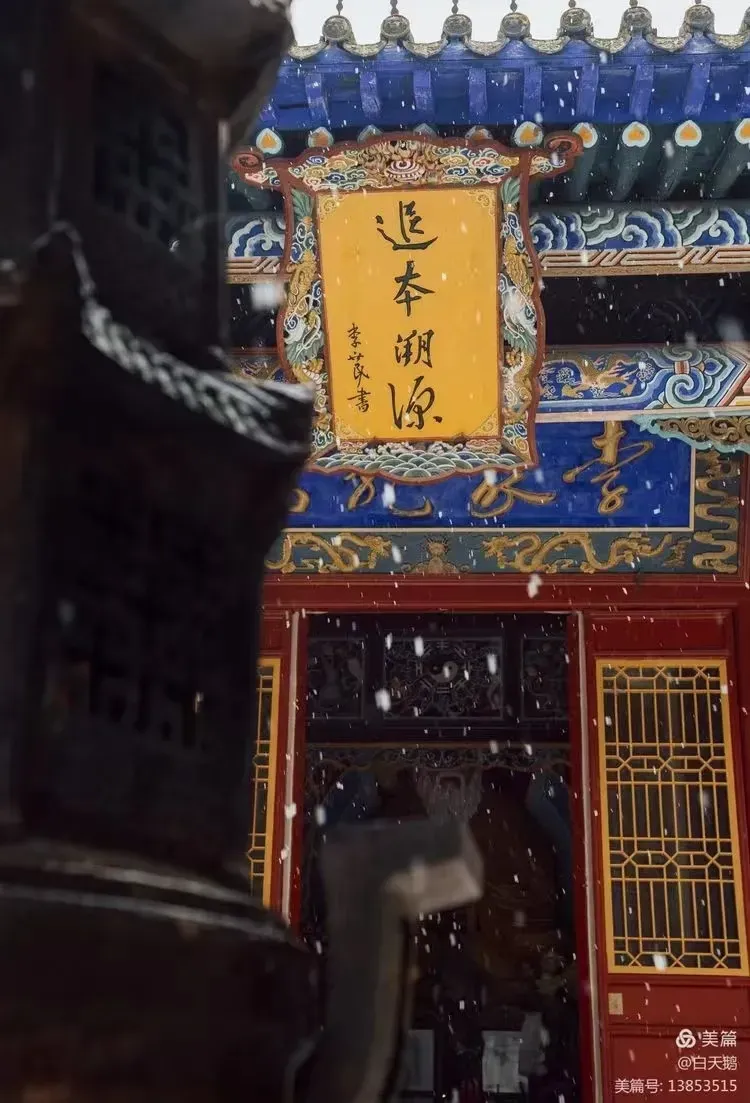 追本溯源
李茂書
李家龙
美篇
@白天鹅
美篇号: 13853515